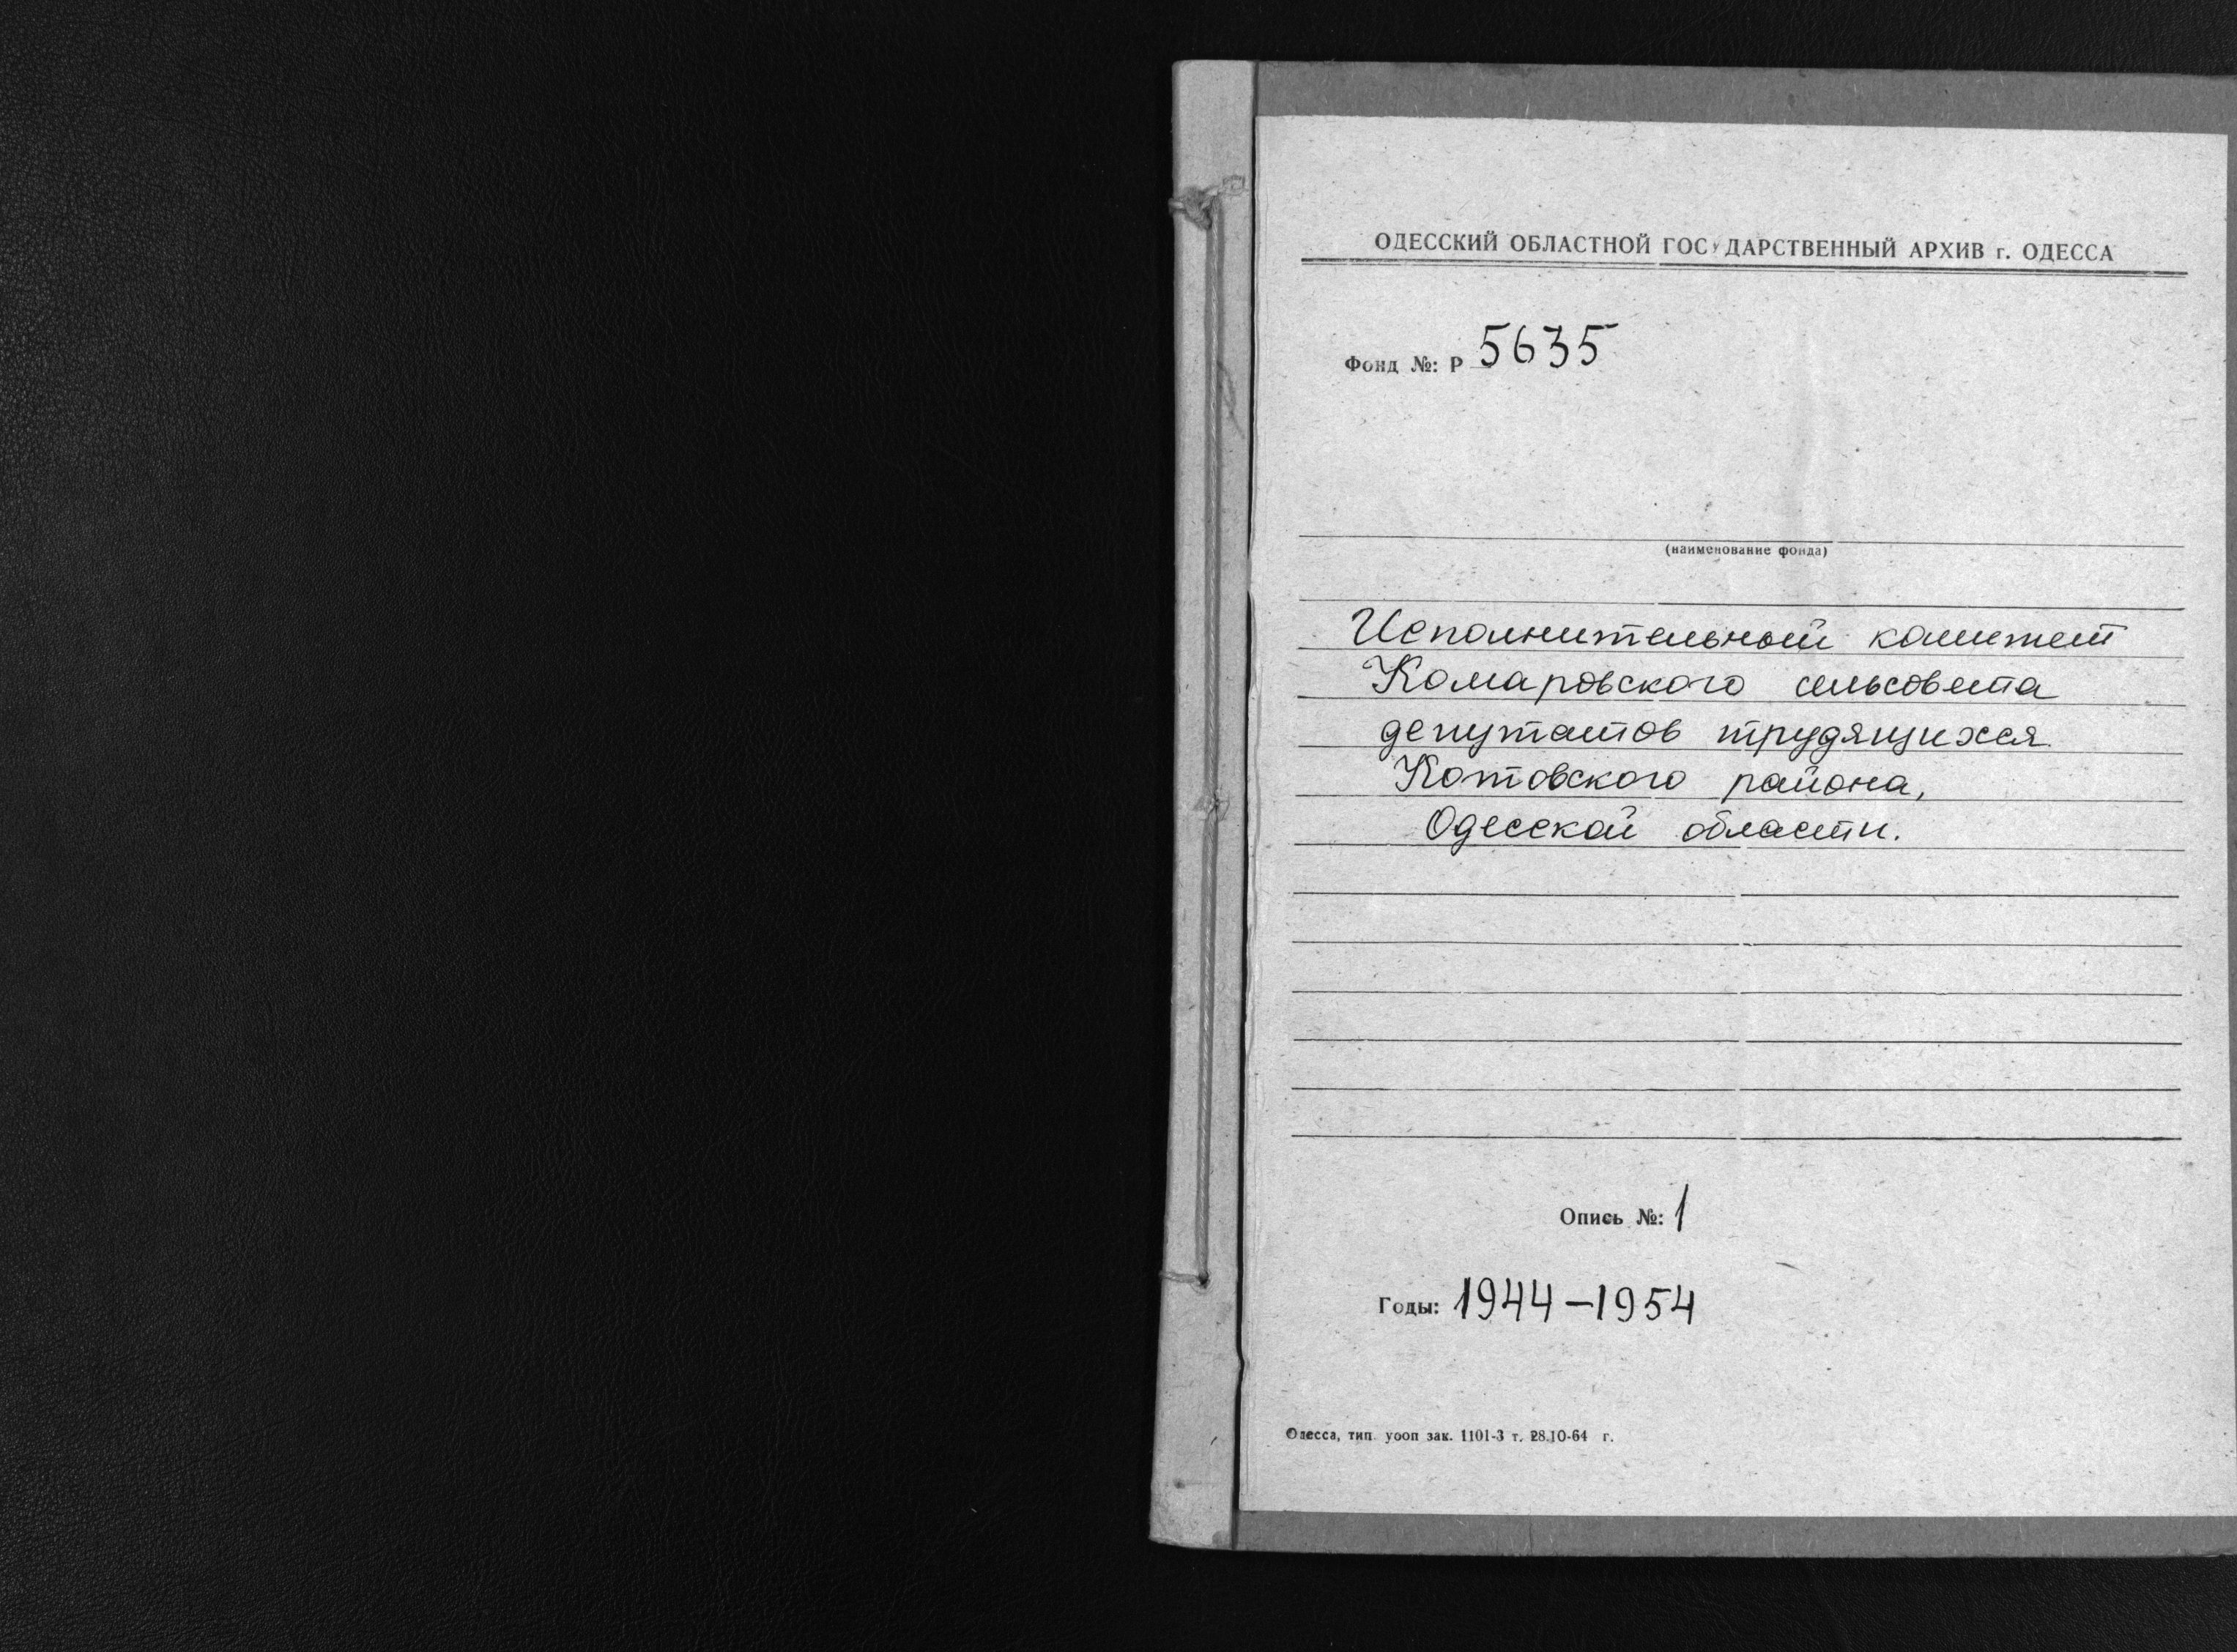 ОДЕССКИЙ ОБЛАСТНОЙ ГОСУДАРСТВЕННЫЙ АРХИВ г. ОДЕССА
Фонд №: Р 5635
(наименование фонда)
Исполнительный комитет
Комаровского сельсовета
депутатов трудящихся
Котовского района,
Одесской области.
Опись №: 1
Годы: 1944-1954
Одесса, тип. уооп зак. 1101-3 т. 28.10-64 г.